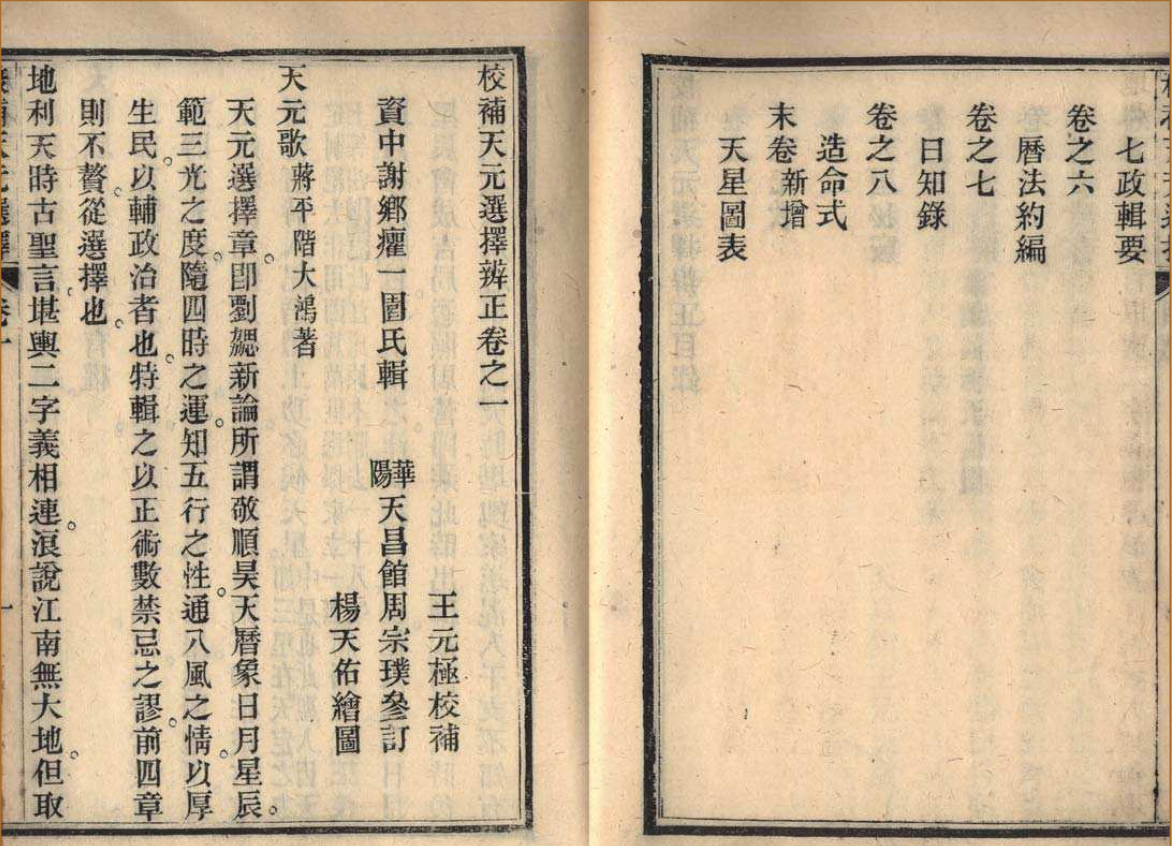 七政輯要
卷之六
曆法約編
卷之七
日知錄
卷之八
造命式
末卷 新增
天星圖表
校補天元選擇辨正卷之一
王元極校補
資中謝鄉癯一圄氏輯 華陽天昌館周宗璞參訂
楊天佑繪圖
天元歌 蔣平階大鴻著
天元選擇章。卽劉勰新論所謂敬順昊天曆象日月星辰。
範三光之度。隨四時之運。知五行之性。通八風之情。以厚
生民。以輔政治者也。特輯之以正術數禁忌之謬。前四章
則不贅。從選擇也。
地利天時古聖言。堪輿二字義相連。浪說江南無大地。但取